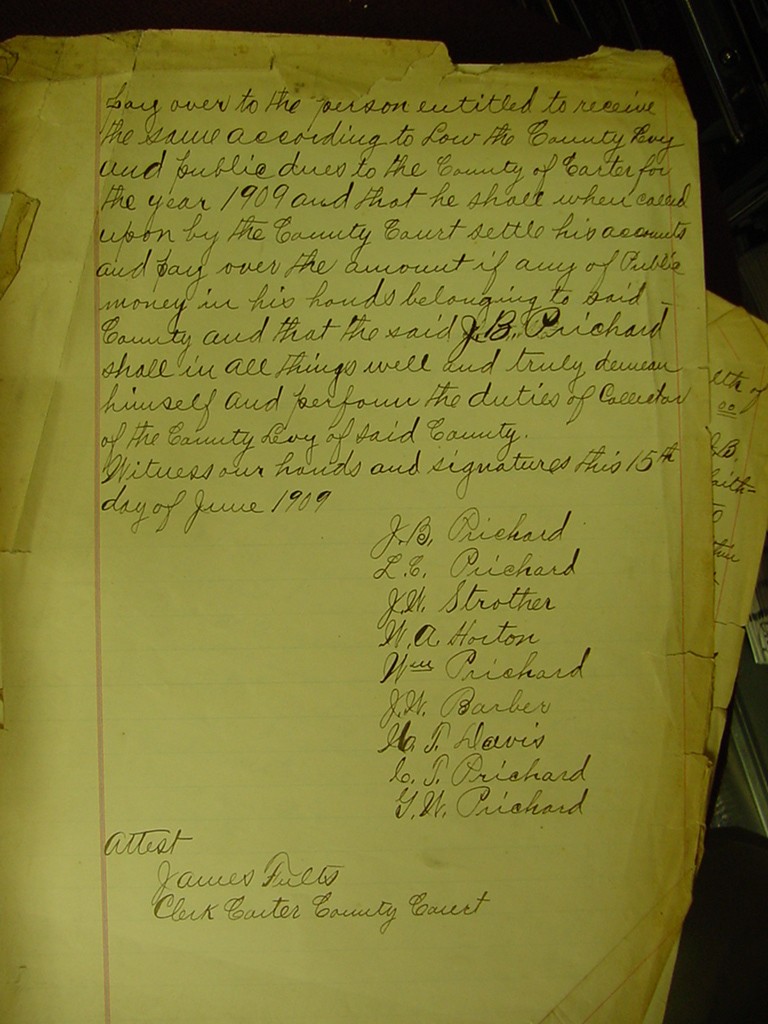 pay over to the person entitled to receive
the same according to Law the County Levy
and public dues to the County of Carter for
the year 1909 and that he shall when called
upon by the County Court settle his accounts
and pay over the amount if any of Public
money in his hands belonging to said -
County and that the said J. B. Prichard
shall in all things well and truly demean
himself and perform the duties of Collector
of the County Levy of said County.
Witness our hands and signatures this 15th
day of June 1909
J. B. Prichard
L. C. Prichard
J. W. Strother
W. A Horton
Wm Prichard
J. W. Barber
T. Davis
C. T. Prichard
G. W. Prichard
Attest
James Fults
Clerk Carter County Court
lth of
oo
J. B.
faith-